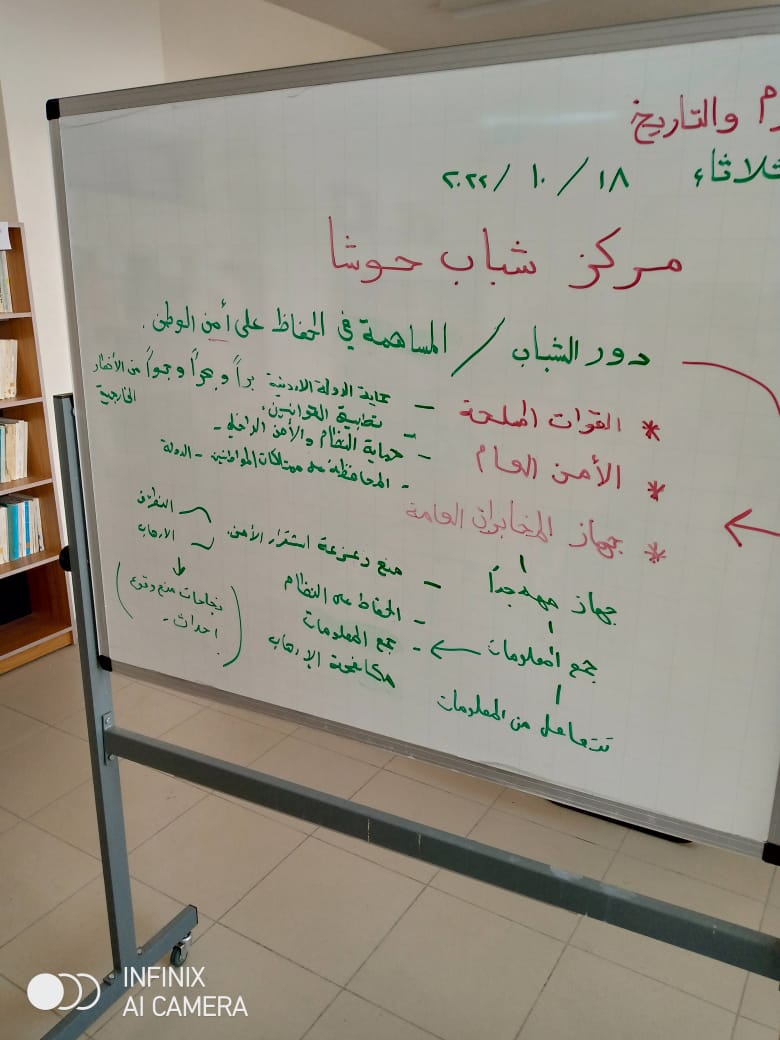 والتاريخ
١٨ / ١٠ / ٢٠٢٢
مركز شباب حوشا
دور الشباب / المساهمة في الحفاظ على أمن الوطن .
* القوات المسلحة – حماية الدولة الاردنية براً وبحراً وجواً من الأخطار الخارجية
– تطبيق القوانين
* الأمن العام – حماية النظام والأمن الداخلي -
- المحافظة على ممتلكات المواطنين - الدولة
* جهاز المخابرات العامة
جهاز مهم جداً – منع زعزعة استقرار الأمن
التطرف
الارهاب
(نجاحات منع وقوع احداث -)
- الحفاظ على النظام
جمع المعلومات ← - جمع المعلومات
مكافحة الإرهاب
تتعامل من المعلومات
INFINIX
AI CAMERA